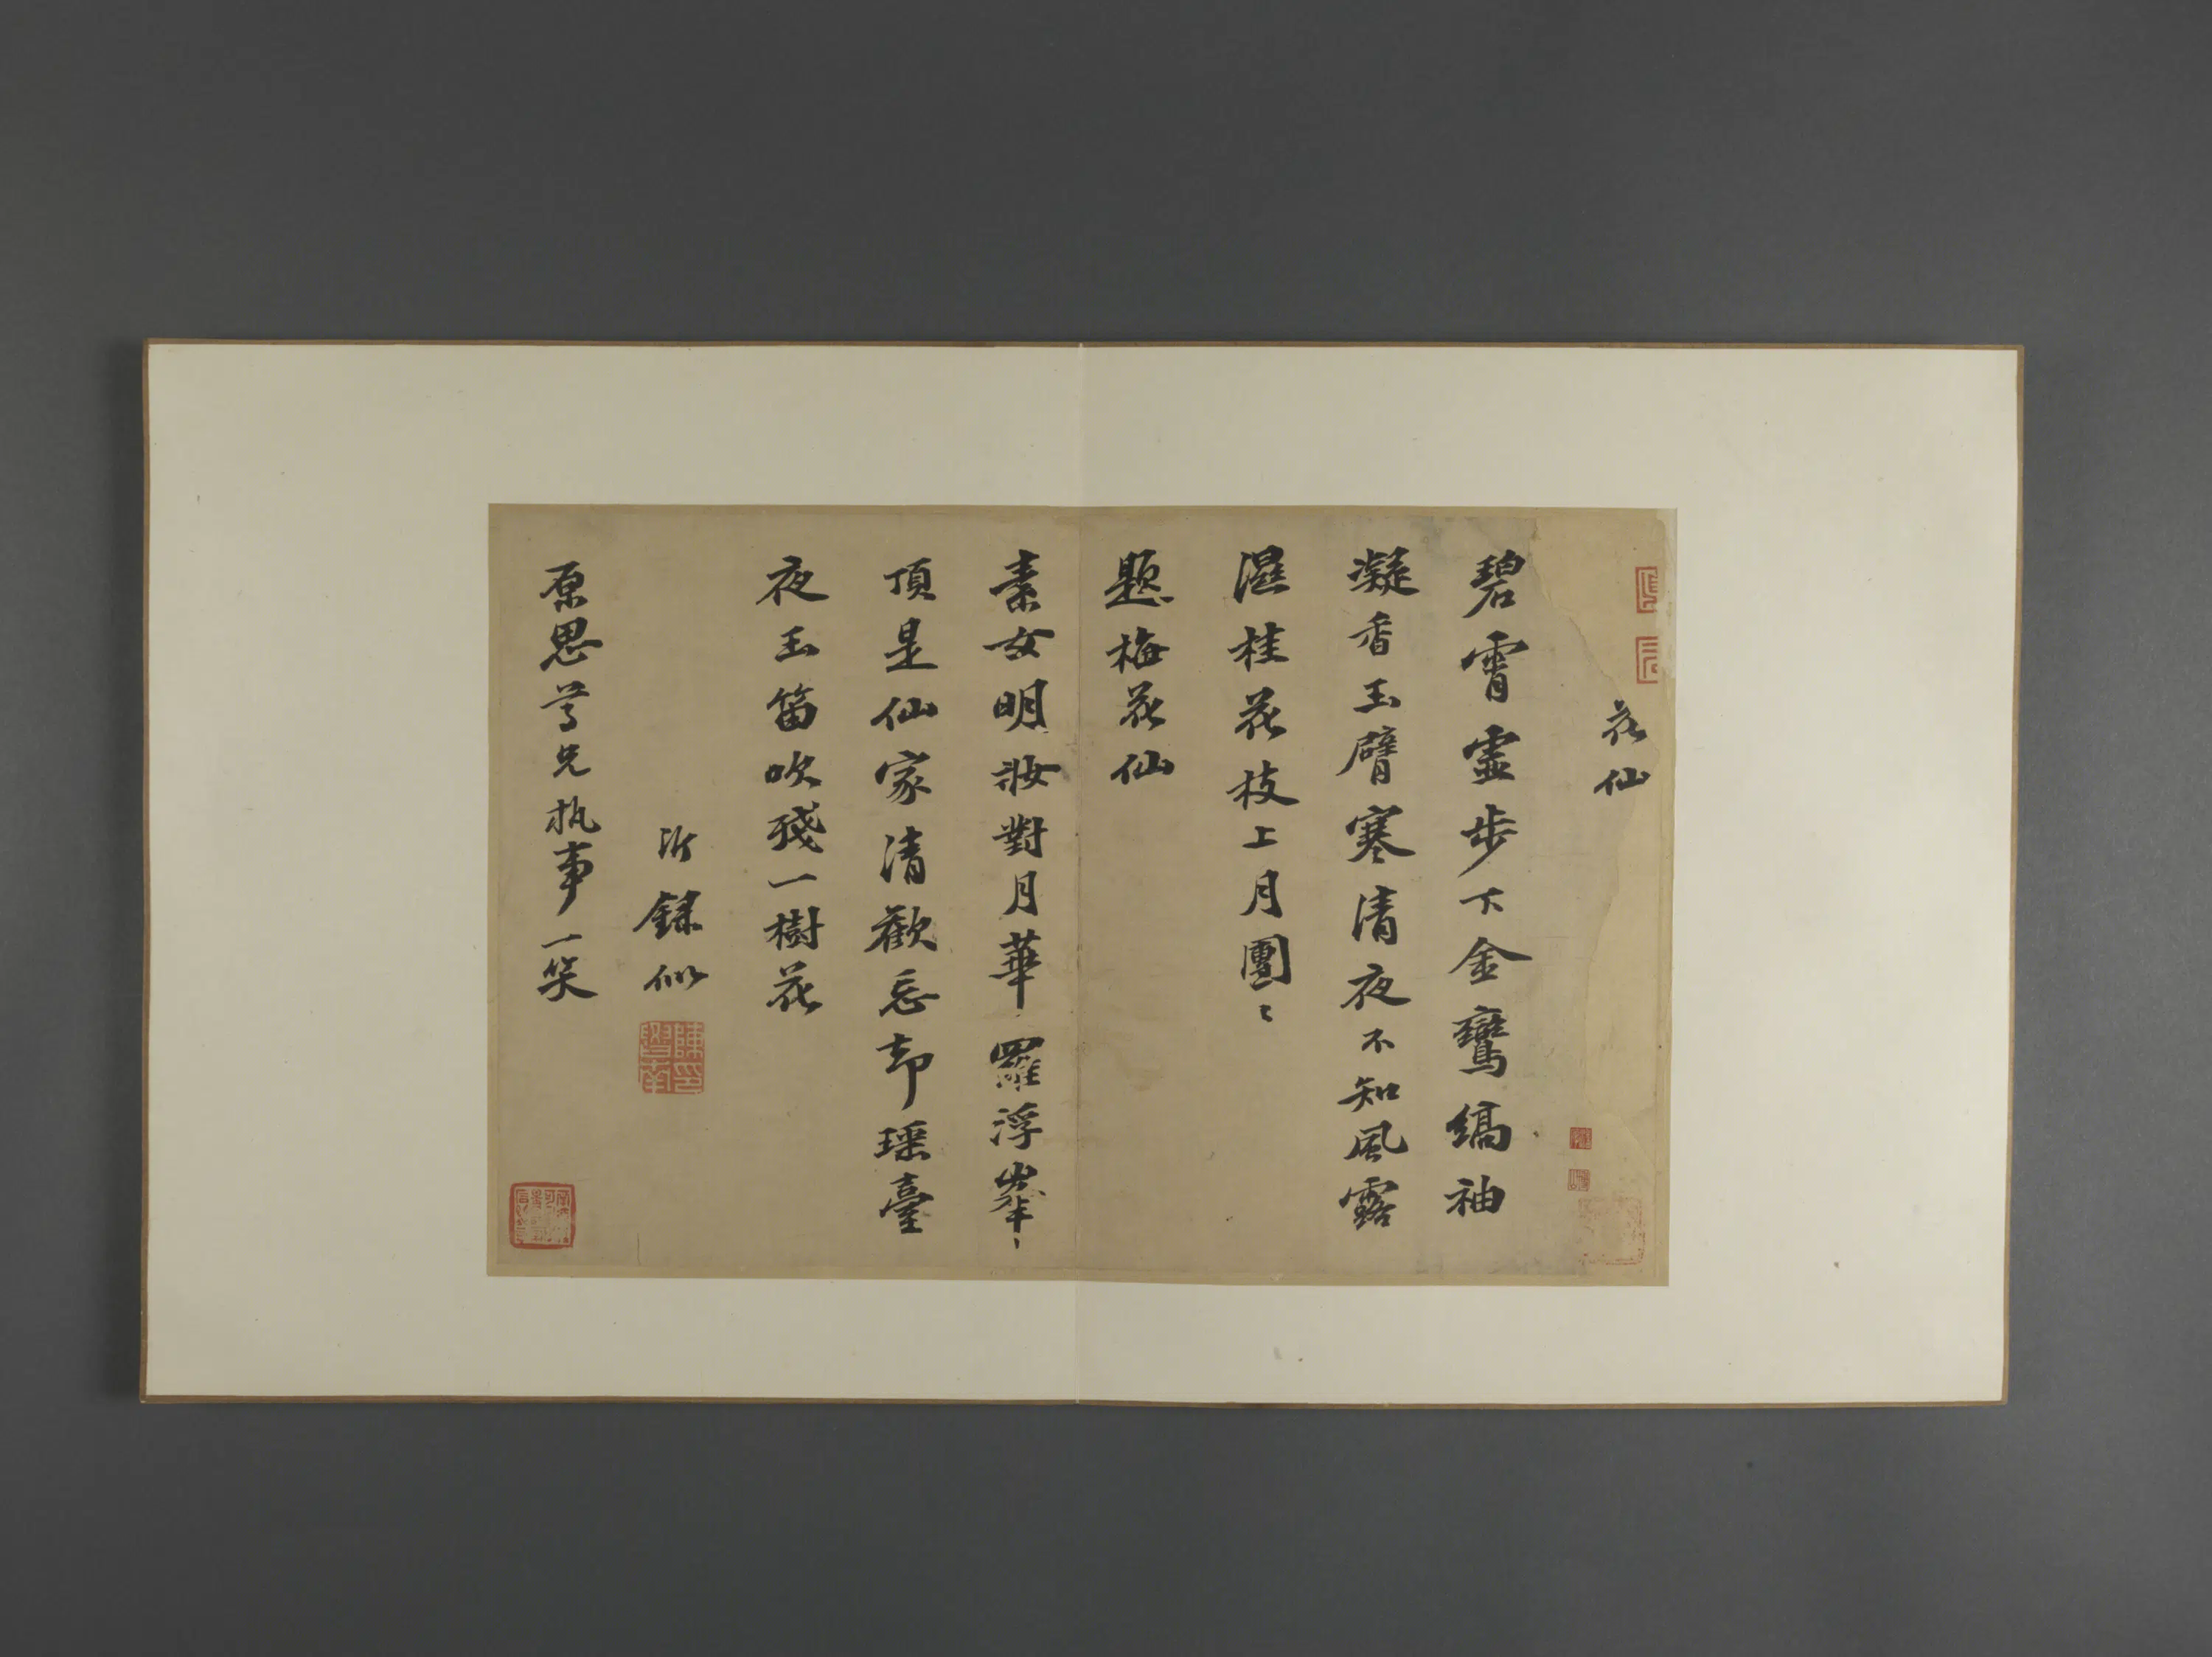 花仙
碧霄靈步下金鸞縞袖
凝香玉臂寒清夜不知風露
濕桂花枝上月團〻
題梅花仙
素女明妝對月華羅浮峯
頂是仙家清歡忘却瑶臺
夜玉笛吹殘一樹花
沂録似
原思尊兄执事一笑